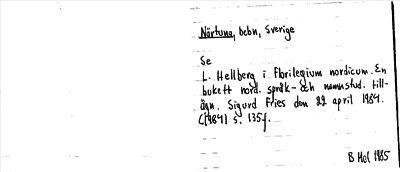 Närtuna, bebn, Sverige
Se
L. Hellberg i Florilegium nordicum. En
bukett nord. språk- och namnstud. till-
ägn. Sigurd Fries den 22 april 1984.
(1984) s. 135f.
B Hel 1985